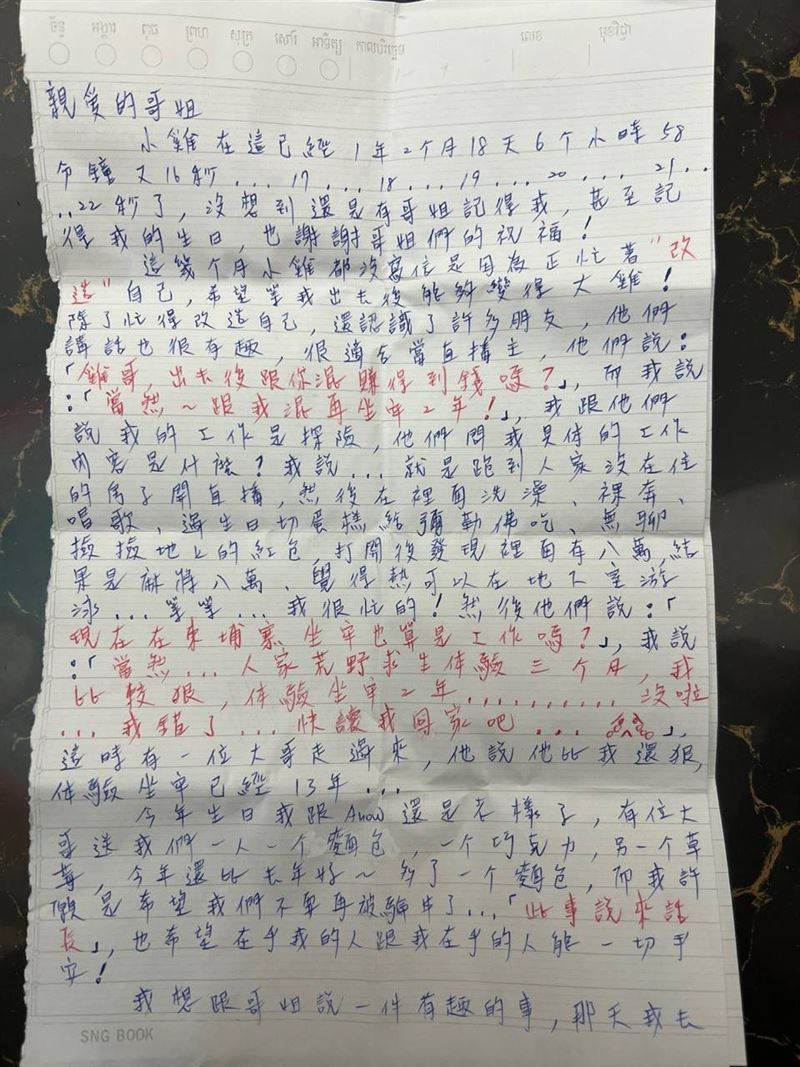 ច័ន្ទ អង្គារ ពុធ ព្រហ សុក្រ សៅរ៍ អាទិត្យ កាលបរិច្ឆេទ លេខ មុខវិជ្ជា
親愛的哥姐
小雞在這已經1年2個月18天6个小時58
分鐘又16秒...17...18...19...20...21..
..22秒了,沒想到還是有哥姐記得我,甚至記
得我的生日,也謝謝哥姐們的祝福!
這幾个月小雞都沒寫信是因為正忙著"改
造"自己,希望等我出去後能夠變得大雞!
除了忙得改造自己,還認識了許多朋友,他們
講話也很有趣,很適合當直播主,他們說:
「雞哥,出去後跟你混賺得到錢嗎?」,而我說
:「當然~跟我混再坐牢2年!」,我跟他們
說我的工作是探險,他們問我具体的工作
內容是什麼?我說...就是跑到人家沒在住
的房子開直播,然後在裡面洗澡、裸奔、
唱歌、過生日切蛋糕給彌勒佛吃、無聊
撿撿地上的紅包,打開後發現裡面有八萬,結
果是麻將八萬、覺得熱可以在地下室游
泳...等等...我很忙的!然後他們說:「
現在在柬埔寨坐牢也算是工作嗎?」,我說
:「當然...人家荒野求生体驗三个月,我
比較狠,体驗坐牢2年..........沒啦
...我錯了...快讓我回家吧...」,
這時有一位大哥走過來,他說他比我還狠,
体驗坐牢已經13年...
今年生日我跟Anow還是老樣子,有位大
哥送我們一人一个麵包,一个巧克力,另一个草
莓,今年還比去年好~多了一个麵包,而我許
願是希望我們不要再被騙生了...「此事說來話
長」,也希望在乎我的人跟我在乎的人能一切平
安!
我想跟哥姐說一件有趣的事,那天我去
SNG BOOK